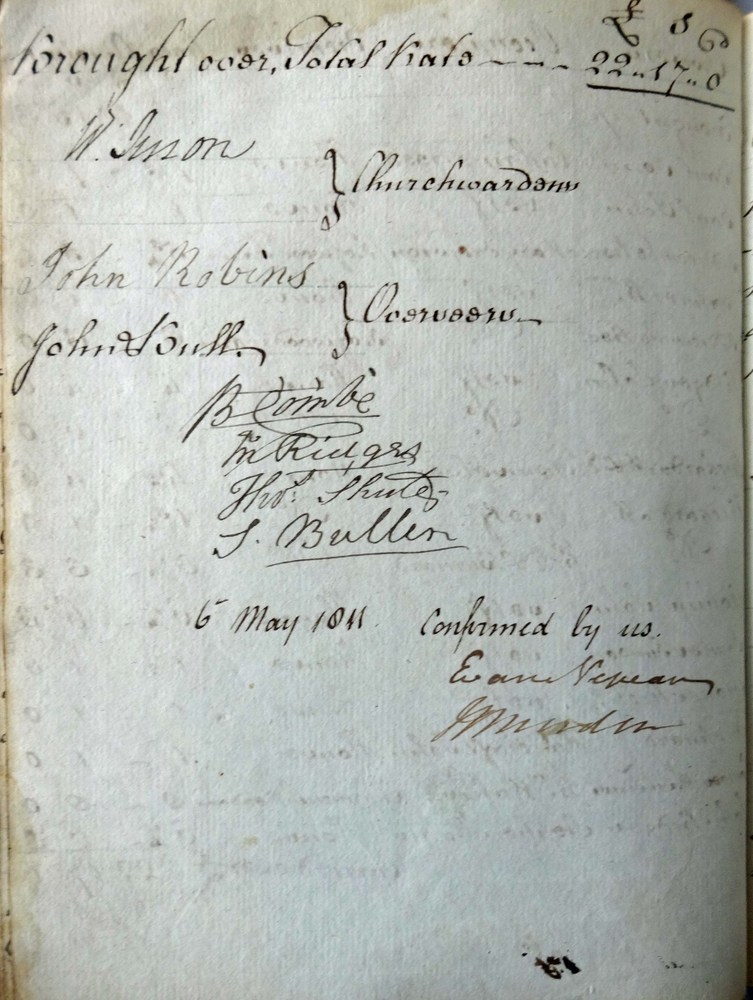 £ s d
brought over, Total Rate - - - 22 " 17 " 0
W. Jesson
Churchwardens
John Robins
Overseers
John Bull
B Combe
Wm Ridges
Thos. Shute
S. Bullen
6 May 1811 Confirmed by us.
Evan Nepean